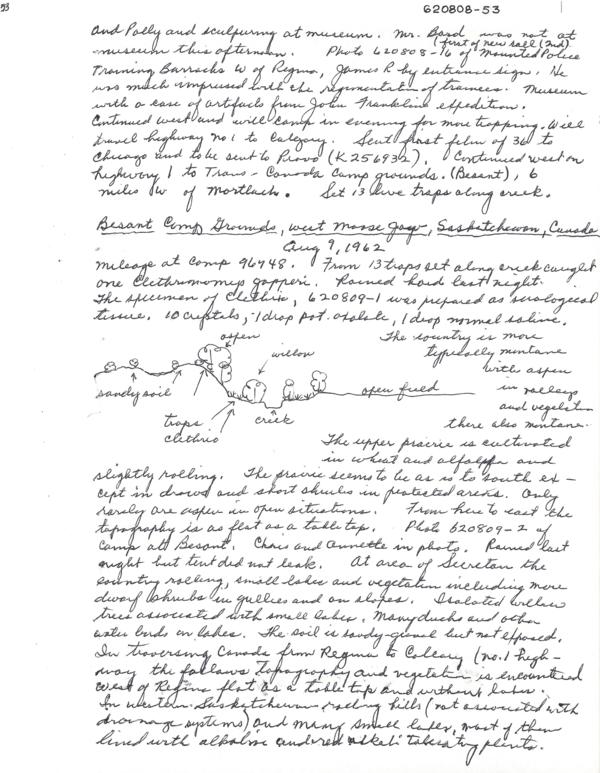 53
620808-53
and Polly and sculpuring at museum. Mr. Bard was not at
museum this afternoon. Photo 620808-16 (first of new roll (2nd) of Mounted Police
Training Barracks W of Regina, James R by entrance sign. He
was much impressed with the regimentation of trainees. Museum
with a case of artifacts from John Franklins expedition.
Continued west and will camp in evening for more trapping. Will
travel highway No 1 to Calgary. Sent first film of 36 to
Chicago and to be sent to Provo (K256932). Continued west on
highway 1 to Trans-Canada Camp grounds. (Besant), 6
miles W of Mortlach. Set 13 live traps along creek.
Besant Camp Grounds, West Moose Jaw, Saskatchewan, Canada
Aug 9, 1962
Mileage at camp 96948. From 13 traps set along creek caught
one Clethrionomys gapperi. Rained hard last night.
The specimen of Clethrio, 620809-1 was prepared as serological
tissue. 10 crystals, 1 drop pot. oxalate, 1 drop normal saline.
aspen
willow
sandy soil
traps
clethrio
creek
open field
The country is more
typically montane
with aspen
in valleys
and vegetation
there also montane.
The upper prairie is cultivated
in wheat and alfalfa and
slightly rolling. The prairie seems to be as is to south ex-
cept in draws and short shrubs in protected areas. Only
rarely are aspen in open situations. From here to east the
topography is as flat as a table top. Photo 620809-2 of
camp at Besant. Chris and Annette in photo. Rained last
night but tent did not leak. At area of Secretan the
country rolling, small lakes and vegetation including more
dwarf shrubs in gullies and on slopes. Isolated willow
trees associated with small lakes. Many ducks and other
water birds on lakes. The soil is sandy-gravel but not exposed.
In traversing Canada from Regina to Calgary (No. 1 high-
way the follows topography and vegetation is encountered
West of Regina flat as a table top and without lakes.
In western Saskatchewan rolling hills (not associated with
drainage systems) and many small lakes, most of them
lined with alkaline and red alkali plants.